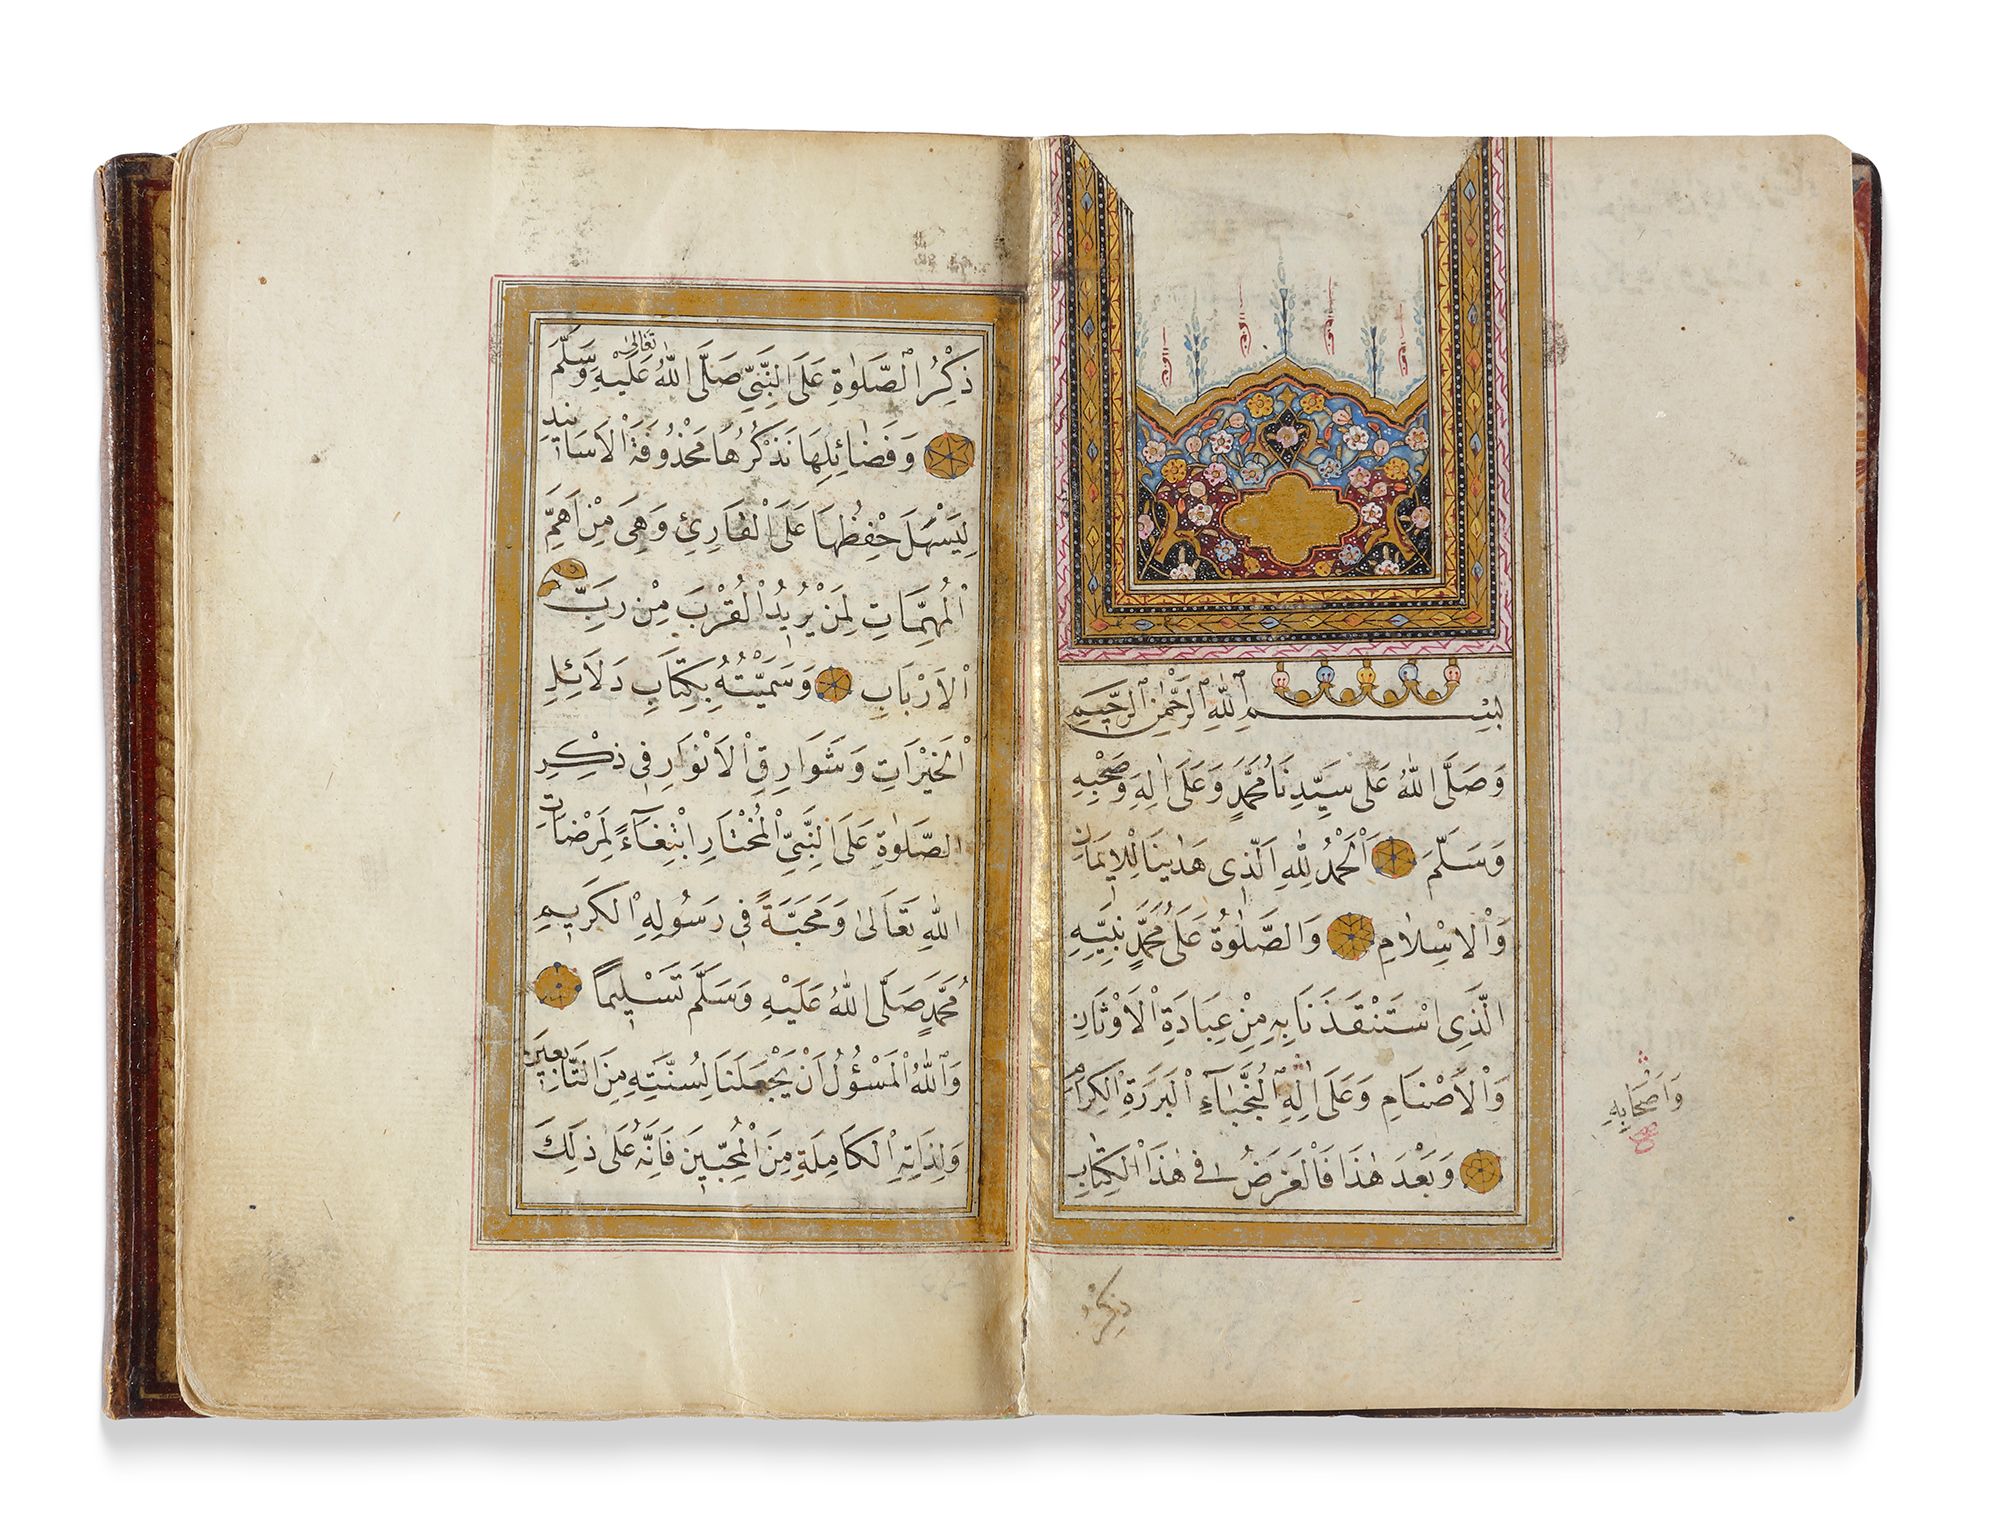 بِسْمِ ٱللّٰهِ ٱلرَّحْمٰنِ ٱلرَّحِيمِ
وَصَلَّى اللّٰهُ عَلٰى سَيِّدِنَا مُحَمَّدٍ وَعَلٰى اٰلِهِ وَصَحْبِهِ
وَسَلَّمَ اَلْحَمْدُ لِلّٰهِ الَّذِى هَدٰينَا لِلْاِيمَانِ
وَالْاِسْلَامِ وَالصَّلٰوةُ عَلٰى مُحَمَّدٍ نَبِيِّهِ
الَّذِى اسْتَنْقَذَنَا بِهِ مِنْ عِبَادَةِ الْاَوْثَانِ
وَالْاَصْنَامِ وَعَلٰى اٰلِهِ النُّجَبَاءِ الْبَرَرَةِ الْكِرَامِ
وَاَصْحَابِهِ
وَبَعْدَ هٰذَا فَالْغَرَضُ فِى هٰذَا الْكِتَابِ
ذِكْرُ
ذِكْرُ الصَّلٰوةِ عَلَى النَّبِيِّ صَلَّى اللّٰهُ تَعَالٰى عَلَيْهِ وَسَلَّمَ
وَفَضَائِلِهَا نَذْكُرُهَا مَحْذُوفَةَ الْاَسَانِيدِ
لِيَسْهُلَ حِفْظُهَا عَلَى الْقَارِئِ وَهِىَ مِنْ اَهَمِّ
الْمُهِمَّاتِ لِمَنْ يُرِيدُ الْقُرْبَ مِنْ رَبِّ
الْاَرْبَابِ وَسَمَّيْتُهُ بِكِتَابِ دَلَائِلِ
الْخَيْرَاتِ وَشَوَارِقِ الْاَنْوَارِ فِى ذِكْرِ
الصَّلٰوةِ عَلَى النَّبِيِّ الْمُخْتَارِ ابْتِغَاءً لِمَرْضَاتِ
اللّٰهِ تَعَالٰى وَمَحَبَّةً فِى رَسُولِهِ الْكَرِيمِ
مُحَمَّدٍ صَلَّى اللّٰهُ عَلَيْهِ وَسَلَّمَ تَسْلِيمًا
وَاللّٰهُ الْمَسْؤُلُ اَنْ يَجْعَلَنَا لِسُنَّتِهِ مِنَ التَّابِعِينَ
وَلِذَاتِهِ الْكَامِلَةِ مِنَ الْمُحِبِّينَ فَاِنَّهُ عَلٰى ذٰلِكَ